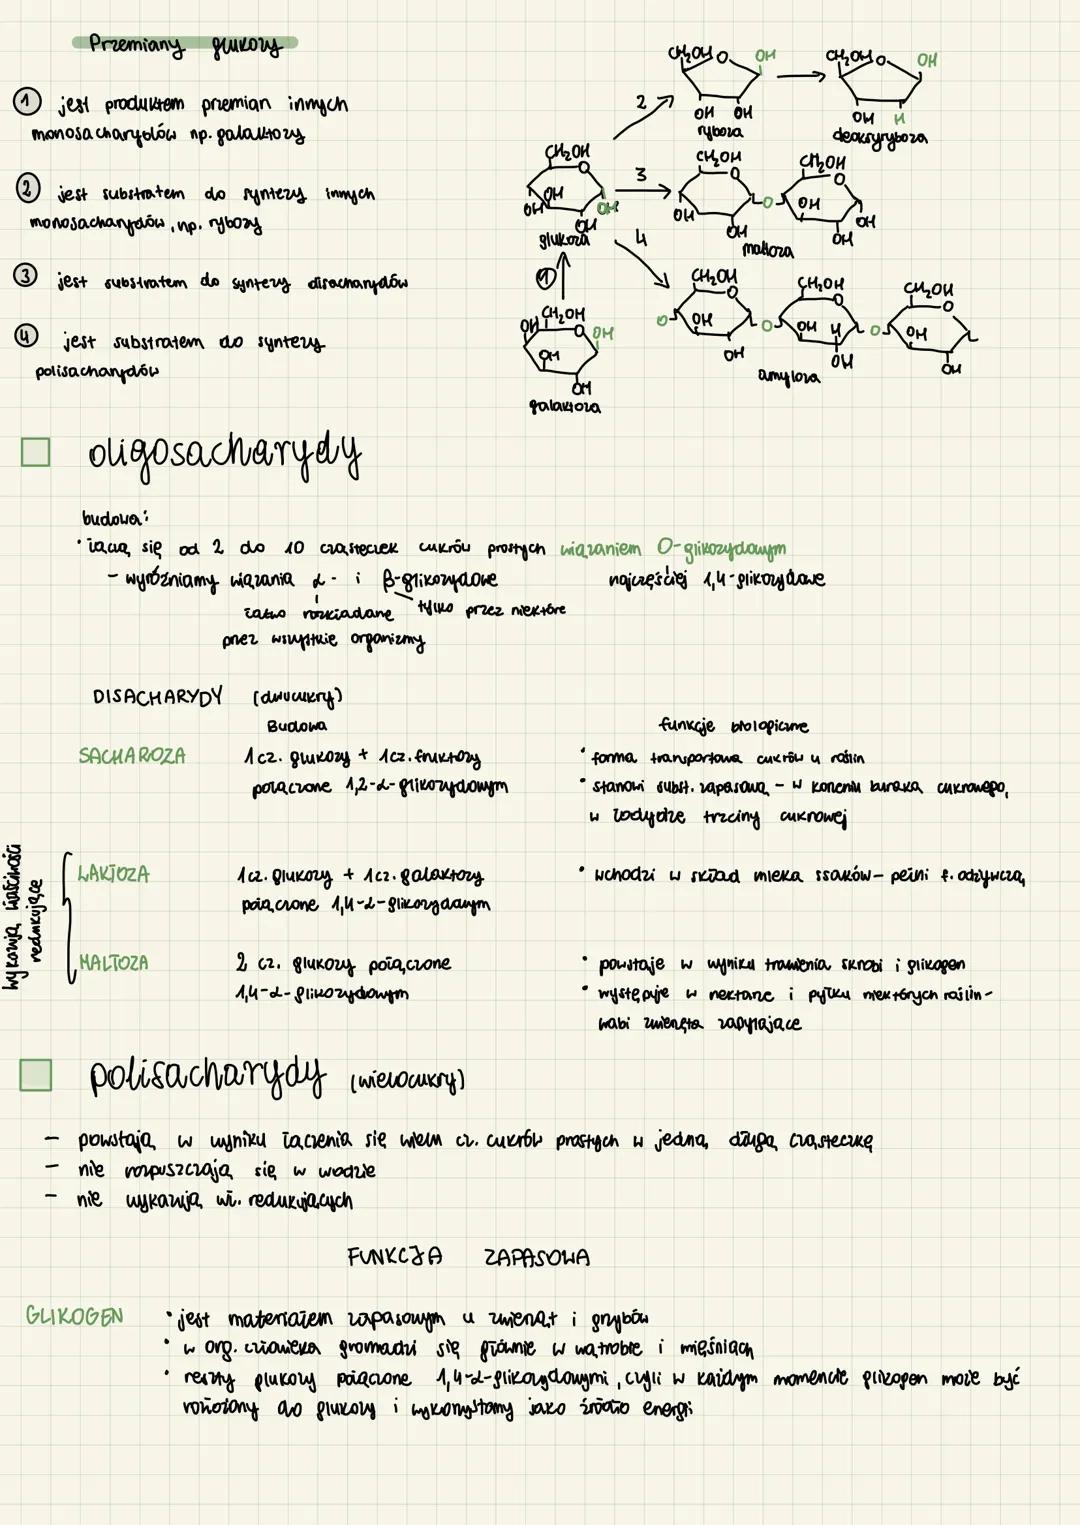 Przemiany glukozy
1 jest produktem przemian innych
monosacharydów np. galaktozy
2 jest substratem do syntezy innych
monosacharydów, np. rybozy
3 jest substratem do syntezy disacharydów
4 jest substratem do syntezy
polisacharydów
CH₂OH O OH
OH OH
ryboza
CH₂OH O OH
OH H
deoksyryboza
2
CH₂OH
O
OH
OH OH
OH
glukoza
3
CH₂OH
O
OH
OH
O
CH₂OH
O
OH
OH
OH
maltoza
4
1
CH₂OH
OH O OH
OH
OH
galaktoza
CH₂OH
O
O OH
OH
O
CH₂OH
O
OH H
OH
O
CH₂OH
O
OH
OH
amyloza
oligosacharydy
budowa:
• łączą się od 2 do 10 cząsteczek cukrów prostych wiązaniem O-glikozydowym
- wyróżniamy wiązania α- i β-glikozydowe najczęściej 1,4-glikozydowe
łatwo rozkładane tylko przez niektóre
przez wszystkie organizmy
DISACHARYDY (dwucukry)
Budowa funkcje biologiczne
SACHAROZA 1 cz. glukozy + 1 cz. fruktozy • forma transportowa cukrów u roślin
połączone 1,2-α-glikozydowym • stanowi subst. zapasową - w korzeniu buraka cukrowego,
w łodydze trzciny cukrowej
wykazują właściwości
redukujące
LAKTOZA 1 cz. glukozy + 1 cz. galaktozy • wchodzi w skład mleka ssaków - pełni f. odżywczą
połączone 1,4-α-glikozydowym
MALTOZA 2 cz. glukozy połączone • powstaje w wyniku trawienia skrobi i glikogen
1,4-α-glikozydowym • występuje w nektarze i pyłku niektórych roślin -
wabi zwierzęta zapylające
polisacharydy (wielocukry)
- powstają w wyniku łączenia się wielu cz. cukrów prostych w jedną długą cząsteczkę
- nie rozpuszczają się w wodzie
- nie wykazują wł. redukujących
FUNKCJA ZAPASOWA
GLIKOGEN • jest materiałem zapasowym u zwierząt i grzybów
• w org. człowieka gromadzi się głównie w wątrobie i mięśniach
• reszty glukozy połączone 1,4-α-glikozydowymi, czyli w każdym momencie glikogen może być
rozłożony do glukozy i wykorzystamy jako źródło energii